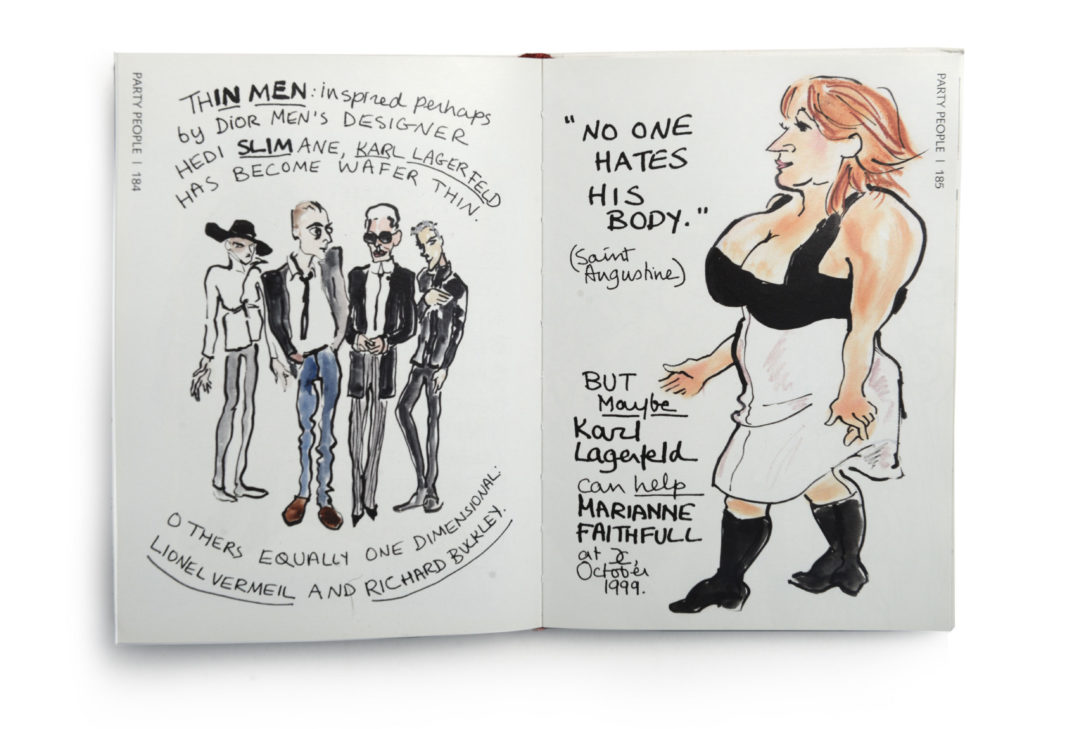 PARTY PEOPLE | 184
THIN MEN: inspired perhaps
by DIOR MEN'S DESIGNER
HEDI SLIMANE, KARL LAGERFELD
HAS BECOME WAFER THIN.
OTHERS EQUALLY ONE DIMENSIONAL:
LIONEL VERMEIL AND RICHARD BUCKLEY.
PARTY PEOPLE | 185
"NO ONE
HATES
HIS
BODY."
(Saint
Augustine)
BUT
Maybe
Karl
Lagerfeld
can help
MARIANNE
FAITHFULL
at
October
1999.